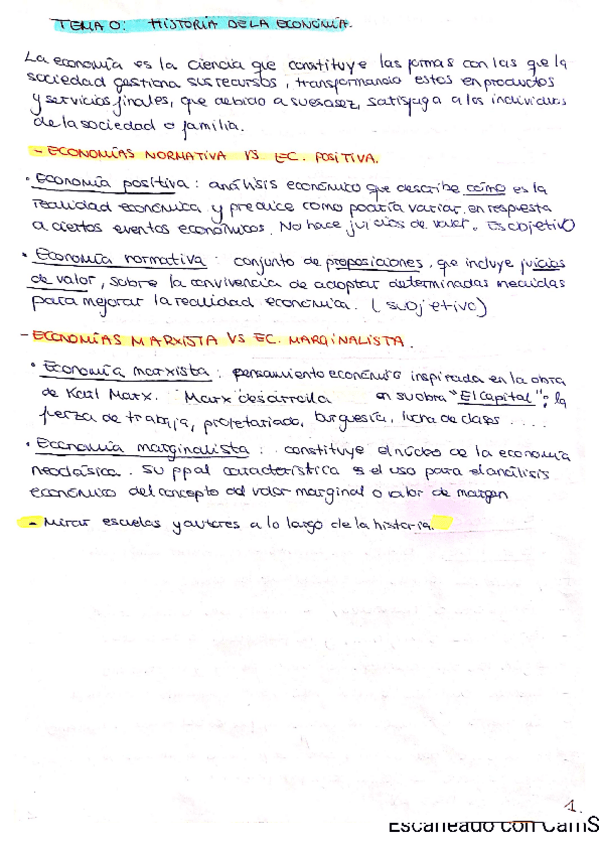 TEMA 0: HISTORIA DE LA ECONOMÍA.
La economía es la ciencia que constituye las formas con las que la
sociedad gestiona sus recursos, transformando estos en productos
y servicios finales, que debido a su esasez, satisfaga a los individuos
de la sociedad o familia.
- ECONOMÍAS NORMATIVA VS EC. POSITIVA.
• Economía positiva: análisis económico que describe cómo es la
realidad económica y predice como podría variar, en respuesta
a ciertos eventos económicos. No hace juicios de valor. Es objetivo
• Economía normativa: conjunto de proposiciones, que incluye juicios
de valor, sobre la convivencia de adoptar determinadas medidas
para mejorar la realidad económica. (subjetivo)
- ECONOMÍAS MARXISTA VS EC. MARGINALISTA.
• Economía marxista: pensamiento económico inspirada en la obra
de Karl Marx. Marx desarrolla en su obra "El Capital"; la
fuerza de trabajo, proletariado, burguesía, lucha de clases ....
• Economía marginalista: constituye el núcleo de la economía
neoclásica. Su ppal característica es el uso para el análisis
económico del concepto del valor marginal o valor de margen
- Mirar escuelas y autores a lo largo de la historia.
1.
Escaneado con CamS